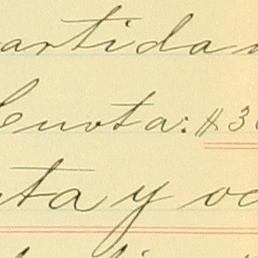 artida
Cuota: $3
ta y oc